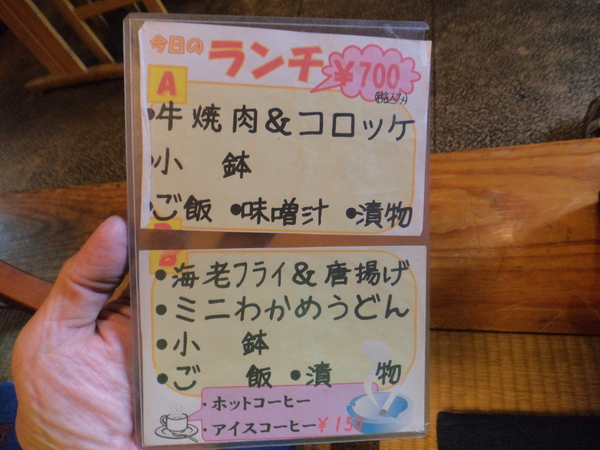 今日のランチ ¥700
(税込み)
A
・牛焼肉&コロッケ
・小 鉢
・ご飯 ・味噌汁 ・漬物
B
・海老フライ&唐揚げ
・ミニわかめうどん
・小 鉢
・ご 飯 ・漬 物
・ホットコーヒー
・アイスコーヒー ¥150